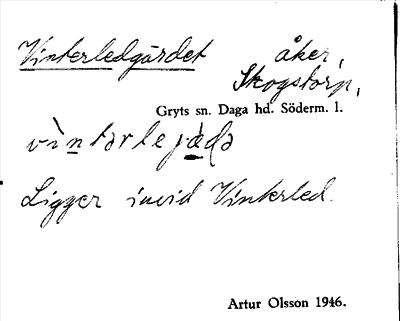 Vinterledgärdet åker,
Skogstorp,
Gryts sn. Daga hd. Söderm. l.
Ligger invid Vinterled.
Artur Olsson 1946.